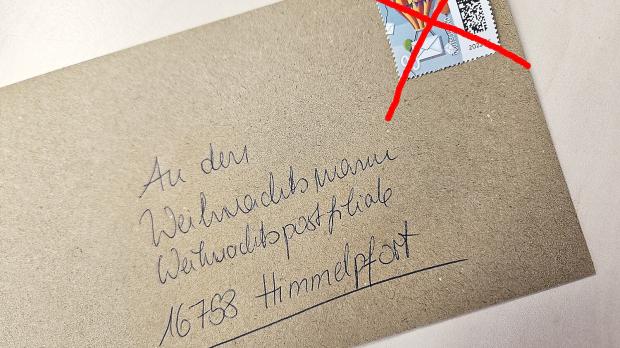 An den
Weihnachtsmann
Weihnachtspostfiliale
16798 Himmelpfort